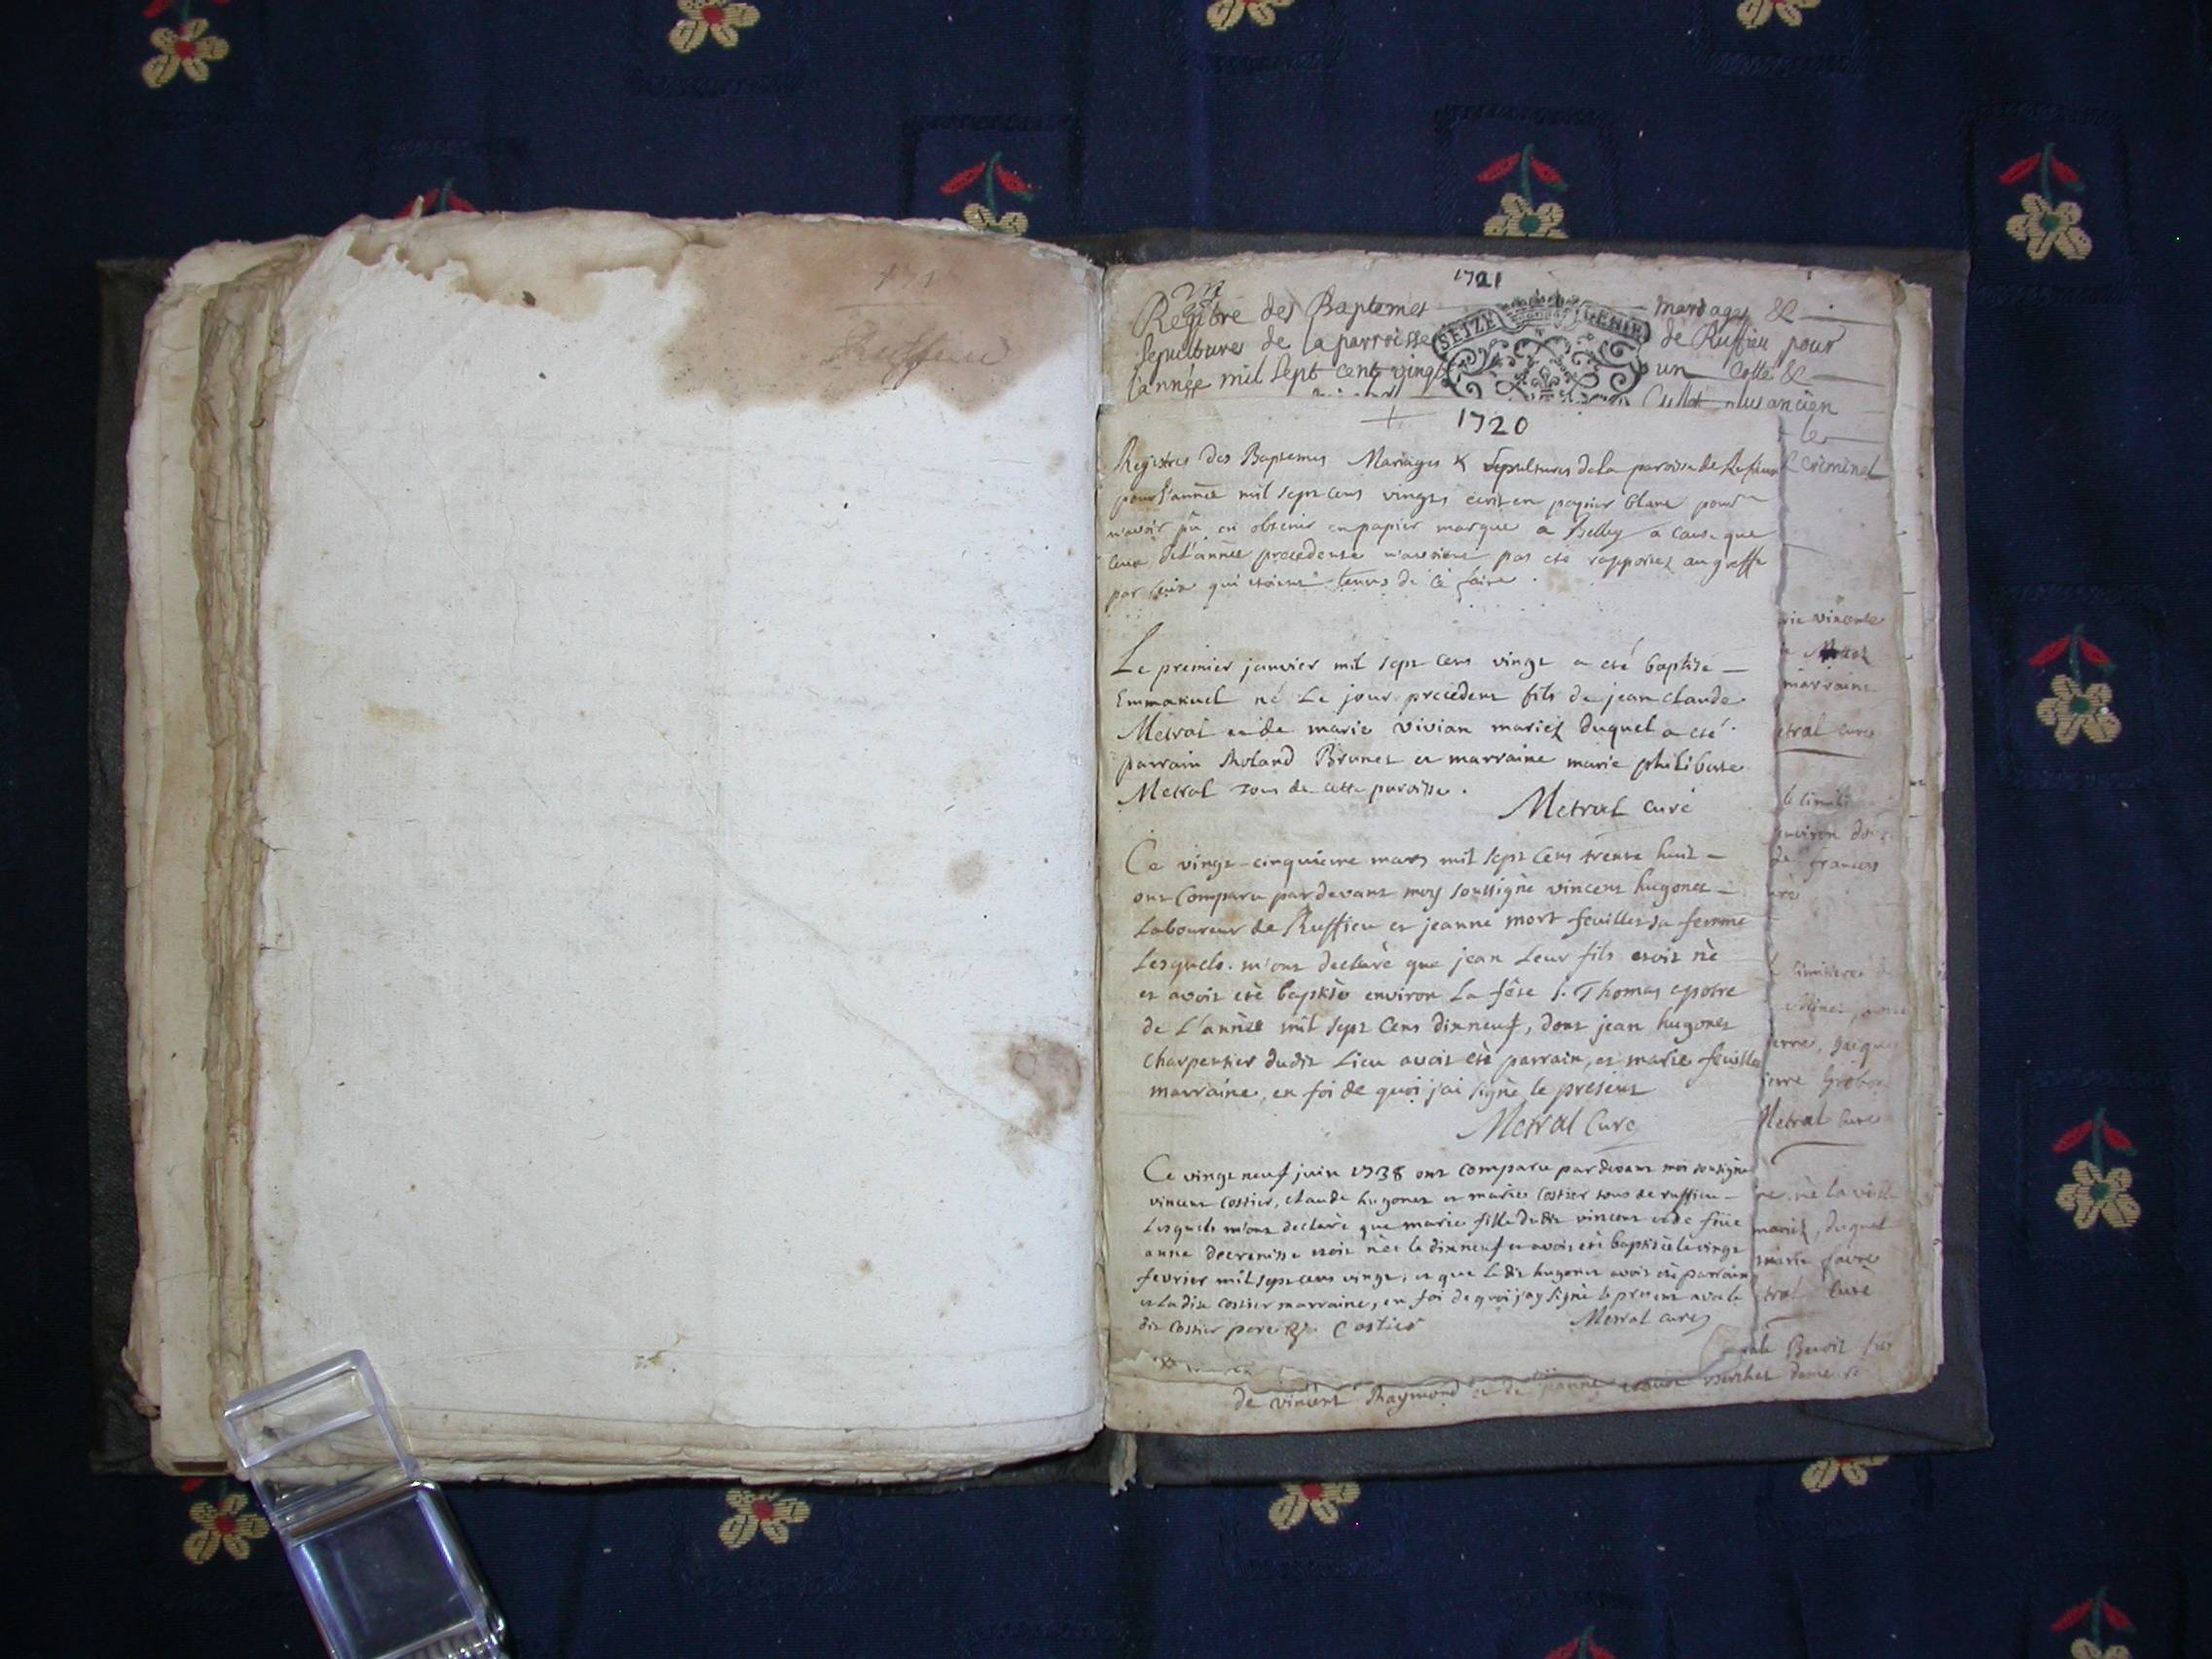 171
Ruffieu
1721
Regitre des Baptemes mariages &
sepultures de la parroisse de Ruffieu pour
l'année mil sept cent vingt un cotté &
SEIZE GENER
plus ancien
criminel
1720
Registres des Baptemes Mariages & sepultures de la paroisse de Rufieu
pour l'année mil sept cens vingt, ecrit en papier blanc pour
n'avoir pû en obtenir en papier marque a Belley a cause que
ceux de l'année precedente n'avoient pas eté rapportez au greffe
par ceux qui etoient tenus de ce faire.
Le premier janvier mil sept cens vingt a eté baptisé
Emmanuel né Le jour precedent fils de jean claude
Metral et de marie vivian mariez duquel a eté
parrain Roland Brunet et marraine marie philiberte
Metral tous de cette paroisse.
Metral curé
Ce vingt-cinquieme mars mil sept cens trente huit
ont comparu pardevant moy soussigné vincent hugonet
Laboureur de Ruffieu et jeanne mort feuillet sa femme
Lesquels m'ont declaré que jean Leur fils etoit né
et avoit eté baptisé environ La féte s. Thomas apotre
de L'année mil sept cens dixneuf, dont jean hugonet
charpentier dudit Lieu avoit eté parrain, et marie feuillet
marraine, en foi de quoi j'ai signé le present
Metral Curé
Ce vingt neuf juin 1738 ont comparu pardevant moi soussigné
vincent costier, claude hugonet et marie costier tous de ruffieu
Lesquels m'ont declaré que marie fille dudit vincent et de füe
anne decrenisse etoit née le dixneuf et avoit eté baptisée le vingt
fevrier mil sept cens vingt, et que ledit hugonet avoit eté parrain
et ladite costier marraine, en foi de quoi j'ay signé le present avec le
dit costier pere Costier Metral curé
rie vincente
marraine
etral curé
environ
de francois
uré
erre, jaque
Metral curé
née la veille
mariez, duquel
marie favre
tral curé
Benoit
de vincent Raymond et de